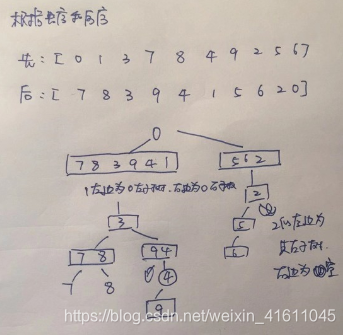 根据先序和后序
先：[ 0 1 3 7 8 4 9 2 5 6]
后：[ 7 8 3 9 4 1 5 6 2 0]
0
7 8 3 9 4 1
5 6 2
1左边为0左子树，右边为0右子树
2
3
5
2的左边为
其左子树，
7 8
9 4
6
右边为空
7
8
4
9
https://blog.csdn.net/weixin_41611045